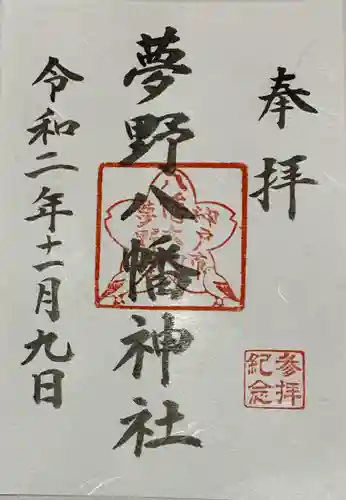 奉拝
夢野八幡神社
令和二年十一月九日
参拝
紀念